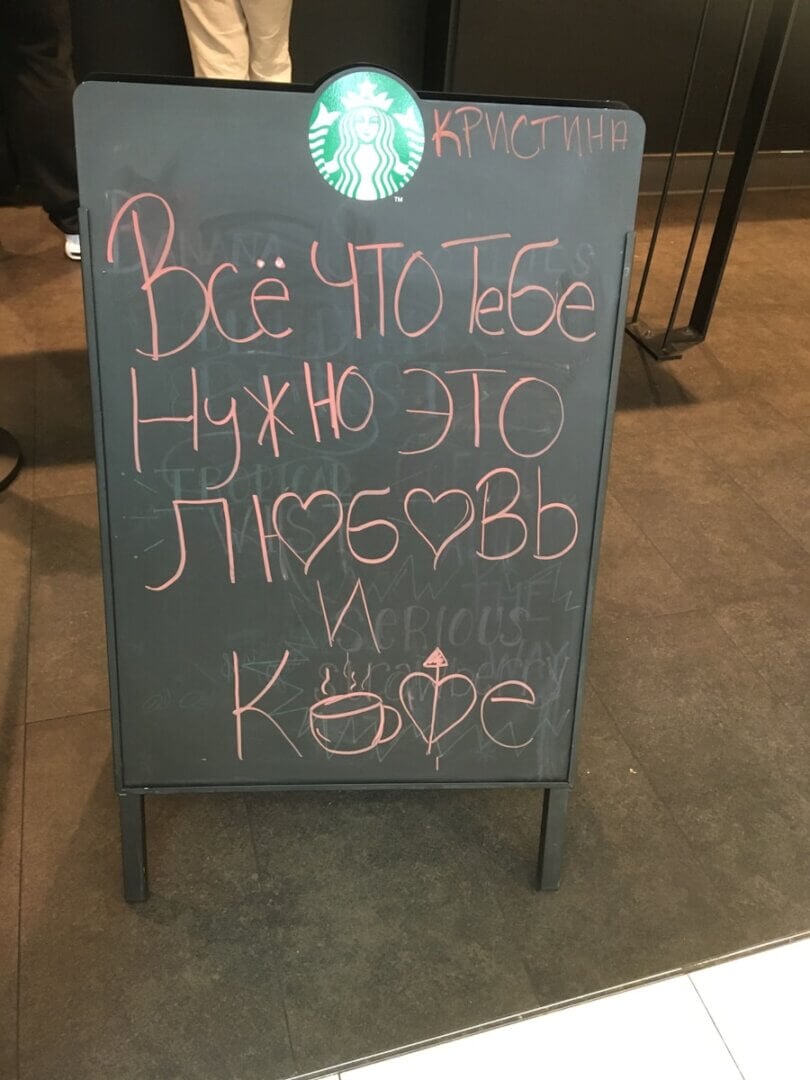 КРИСТИНА
Всё ЧТО Тебе
Нужно ЭТО
ЛЮБОВЬ
И
Кофе
THE
SERIOUS
strawberry